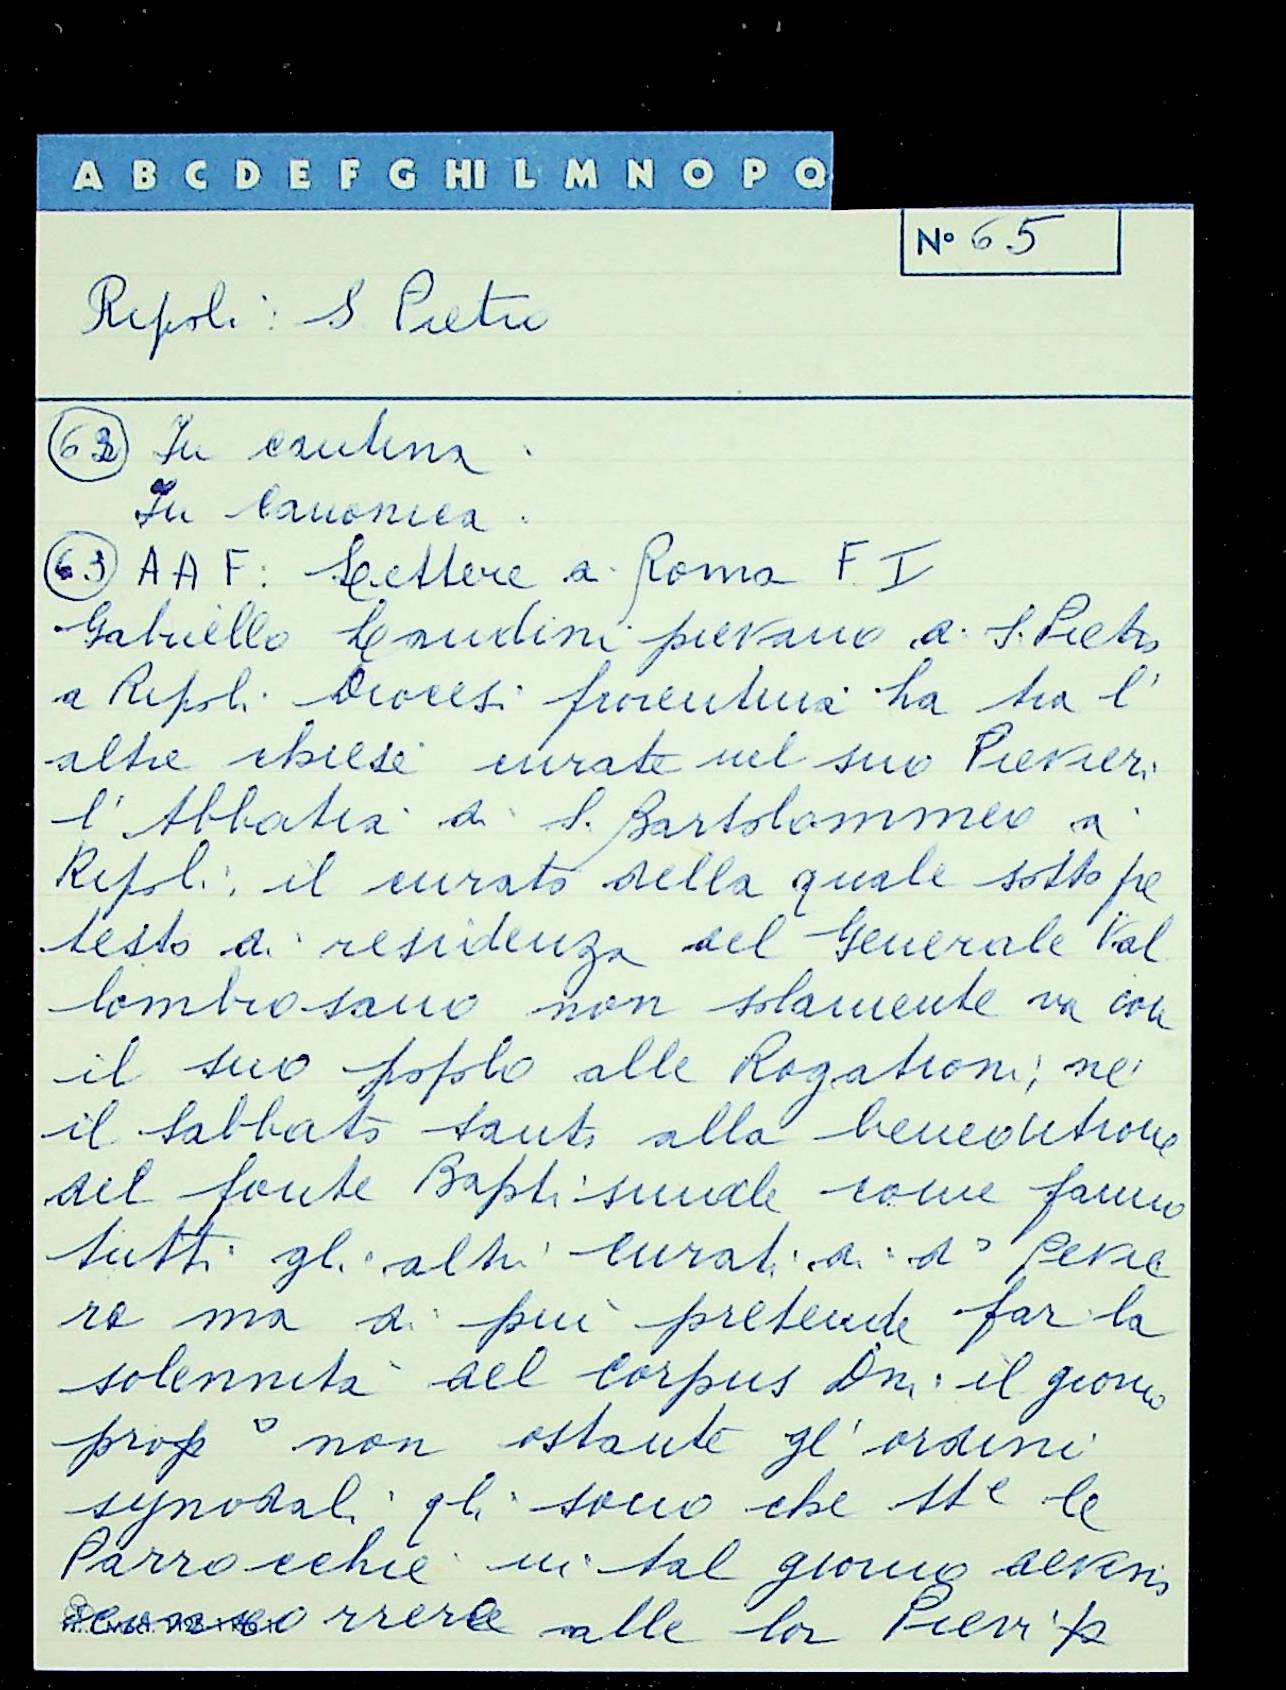 A B C D E F G HI L M N O P Q
Nº 65
Ripoli: S Pietro
62 In cantina.
In canonica.
63 AAF: Lettere a Roma F. I
Gabriello Landini pievano di S. Pietro
a Ripoli Diocesi fiorentina ha tra l'
altre chiese curate nel suo Pievieri
l'Abbatia di S. Bartolommeo a
Ripoli, il curato della quale sotto pre
testo di residenza del Generale Val
lombrosano non solamente va con
il suo popolo alle Rogationi, né
il Sabbato santo alla beneditione
del fonte Baptismale come fanno
tutti gli altri curati di d° Pevie
re ma di piu pretende far la
solennità del Corpus Dni il giorno
prop° non ostante gl'ordini
synodali qli sono che tte le
Parrocchie in tal giorno devino
concorrere alle lor Pievi p